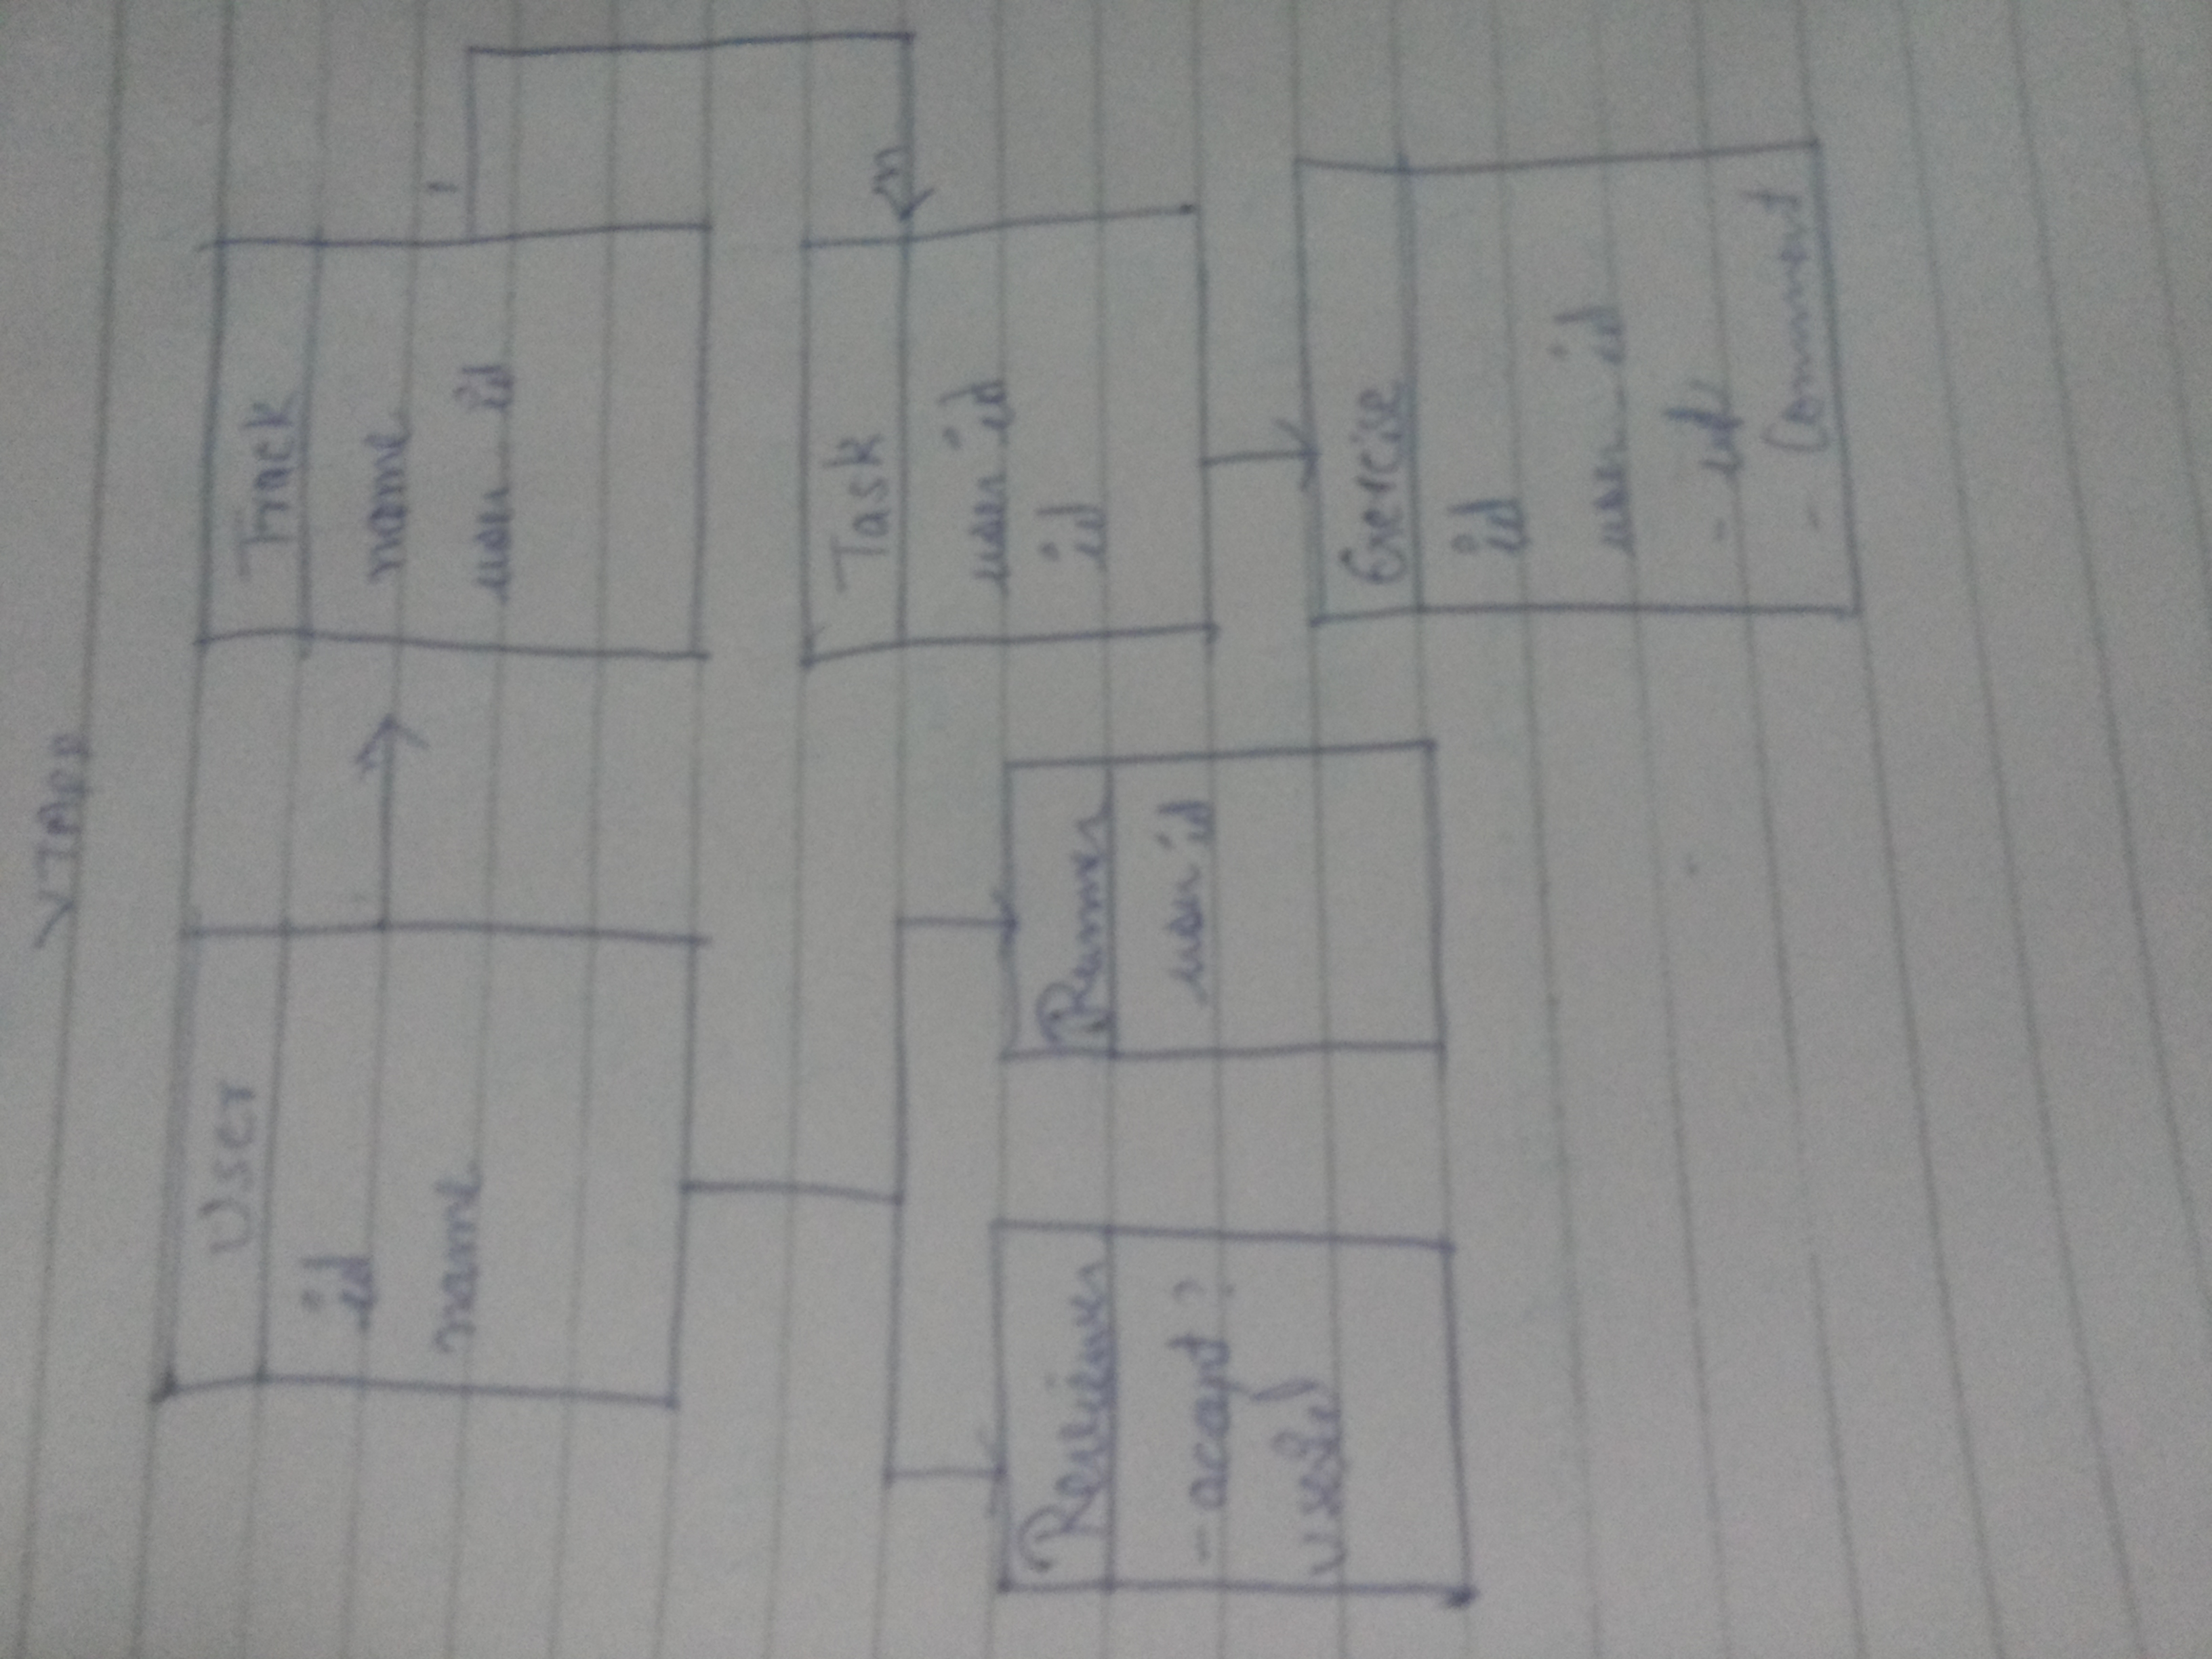 VTApp
User
id
name
n
Track
name
user id
1
n
Task
user id
id
Reviewer
- acept ?
userid
Runner
user id
Exercise
id
user id
- id
- Comment